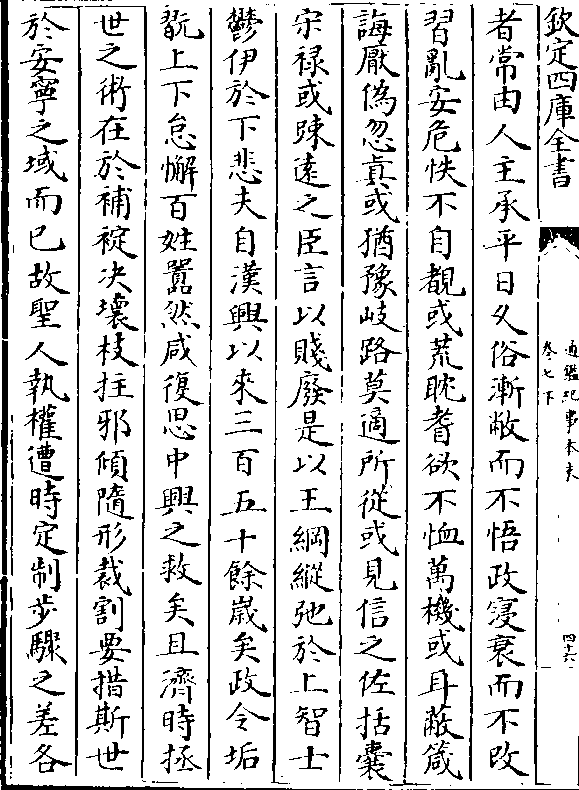 欽定四庫全書
通鑑紀事本末
卷七下
四十六
者常由人主承平日久俗漸敝而不悟政寖衰而不改
習亂安危怢不自覩或荒耽耆欲不恤萬機或耳蔽箴
誨厭偽忽真或猶豫岐路莫適所從或見信之佐括囊
守祿或疎遠之臣言以賤廢是以王綱縱弛於上智士
鬱伊於下悲夫自漢興以來三百五十餘嵗矣政令垢
翫上下怠懈百姓嚻然咸復思中興之救矣且濟時拯
世之術在於補䘺决壞枝拄邪傾隨形裁割要措斯世
於安寧之域而已故聖人執權遭時定制步驟之差各